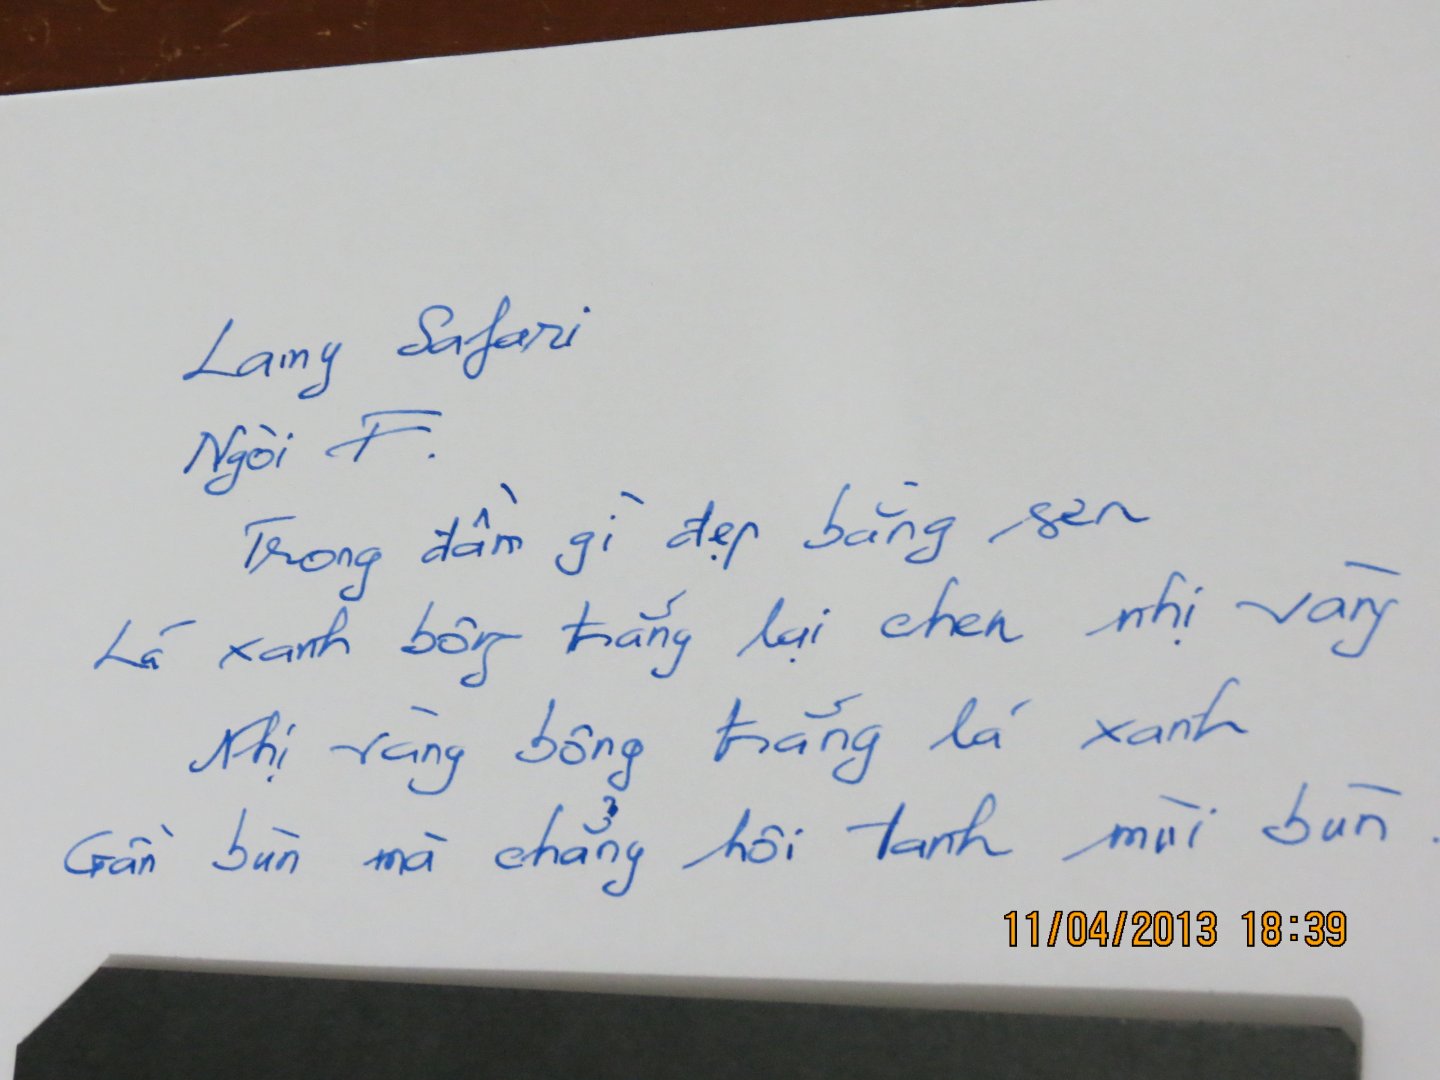 Lamy Safari
Ngòi F.
Trong đầm gì đẹp bằng sen
Lá xanh bông trắng lại chen nhị vàng
Nhị vàng bông trắng lá xanh
Gần bùn mà chẳng hôi tanh mùi bùn.
11/04/2013 18:39